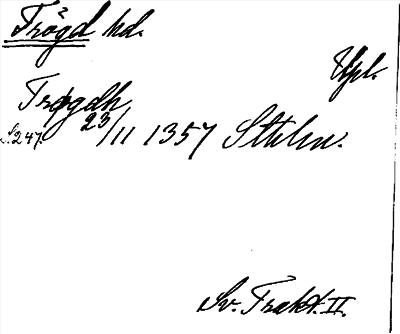 Trögd hd.
Upl.
Trøgdh
S. 247. 23/11 1357 Sthlm.
Sv. Trakt. II.